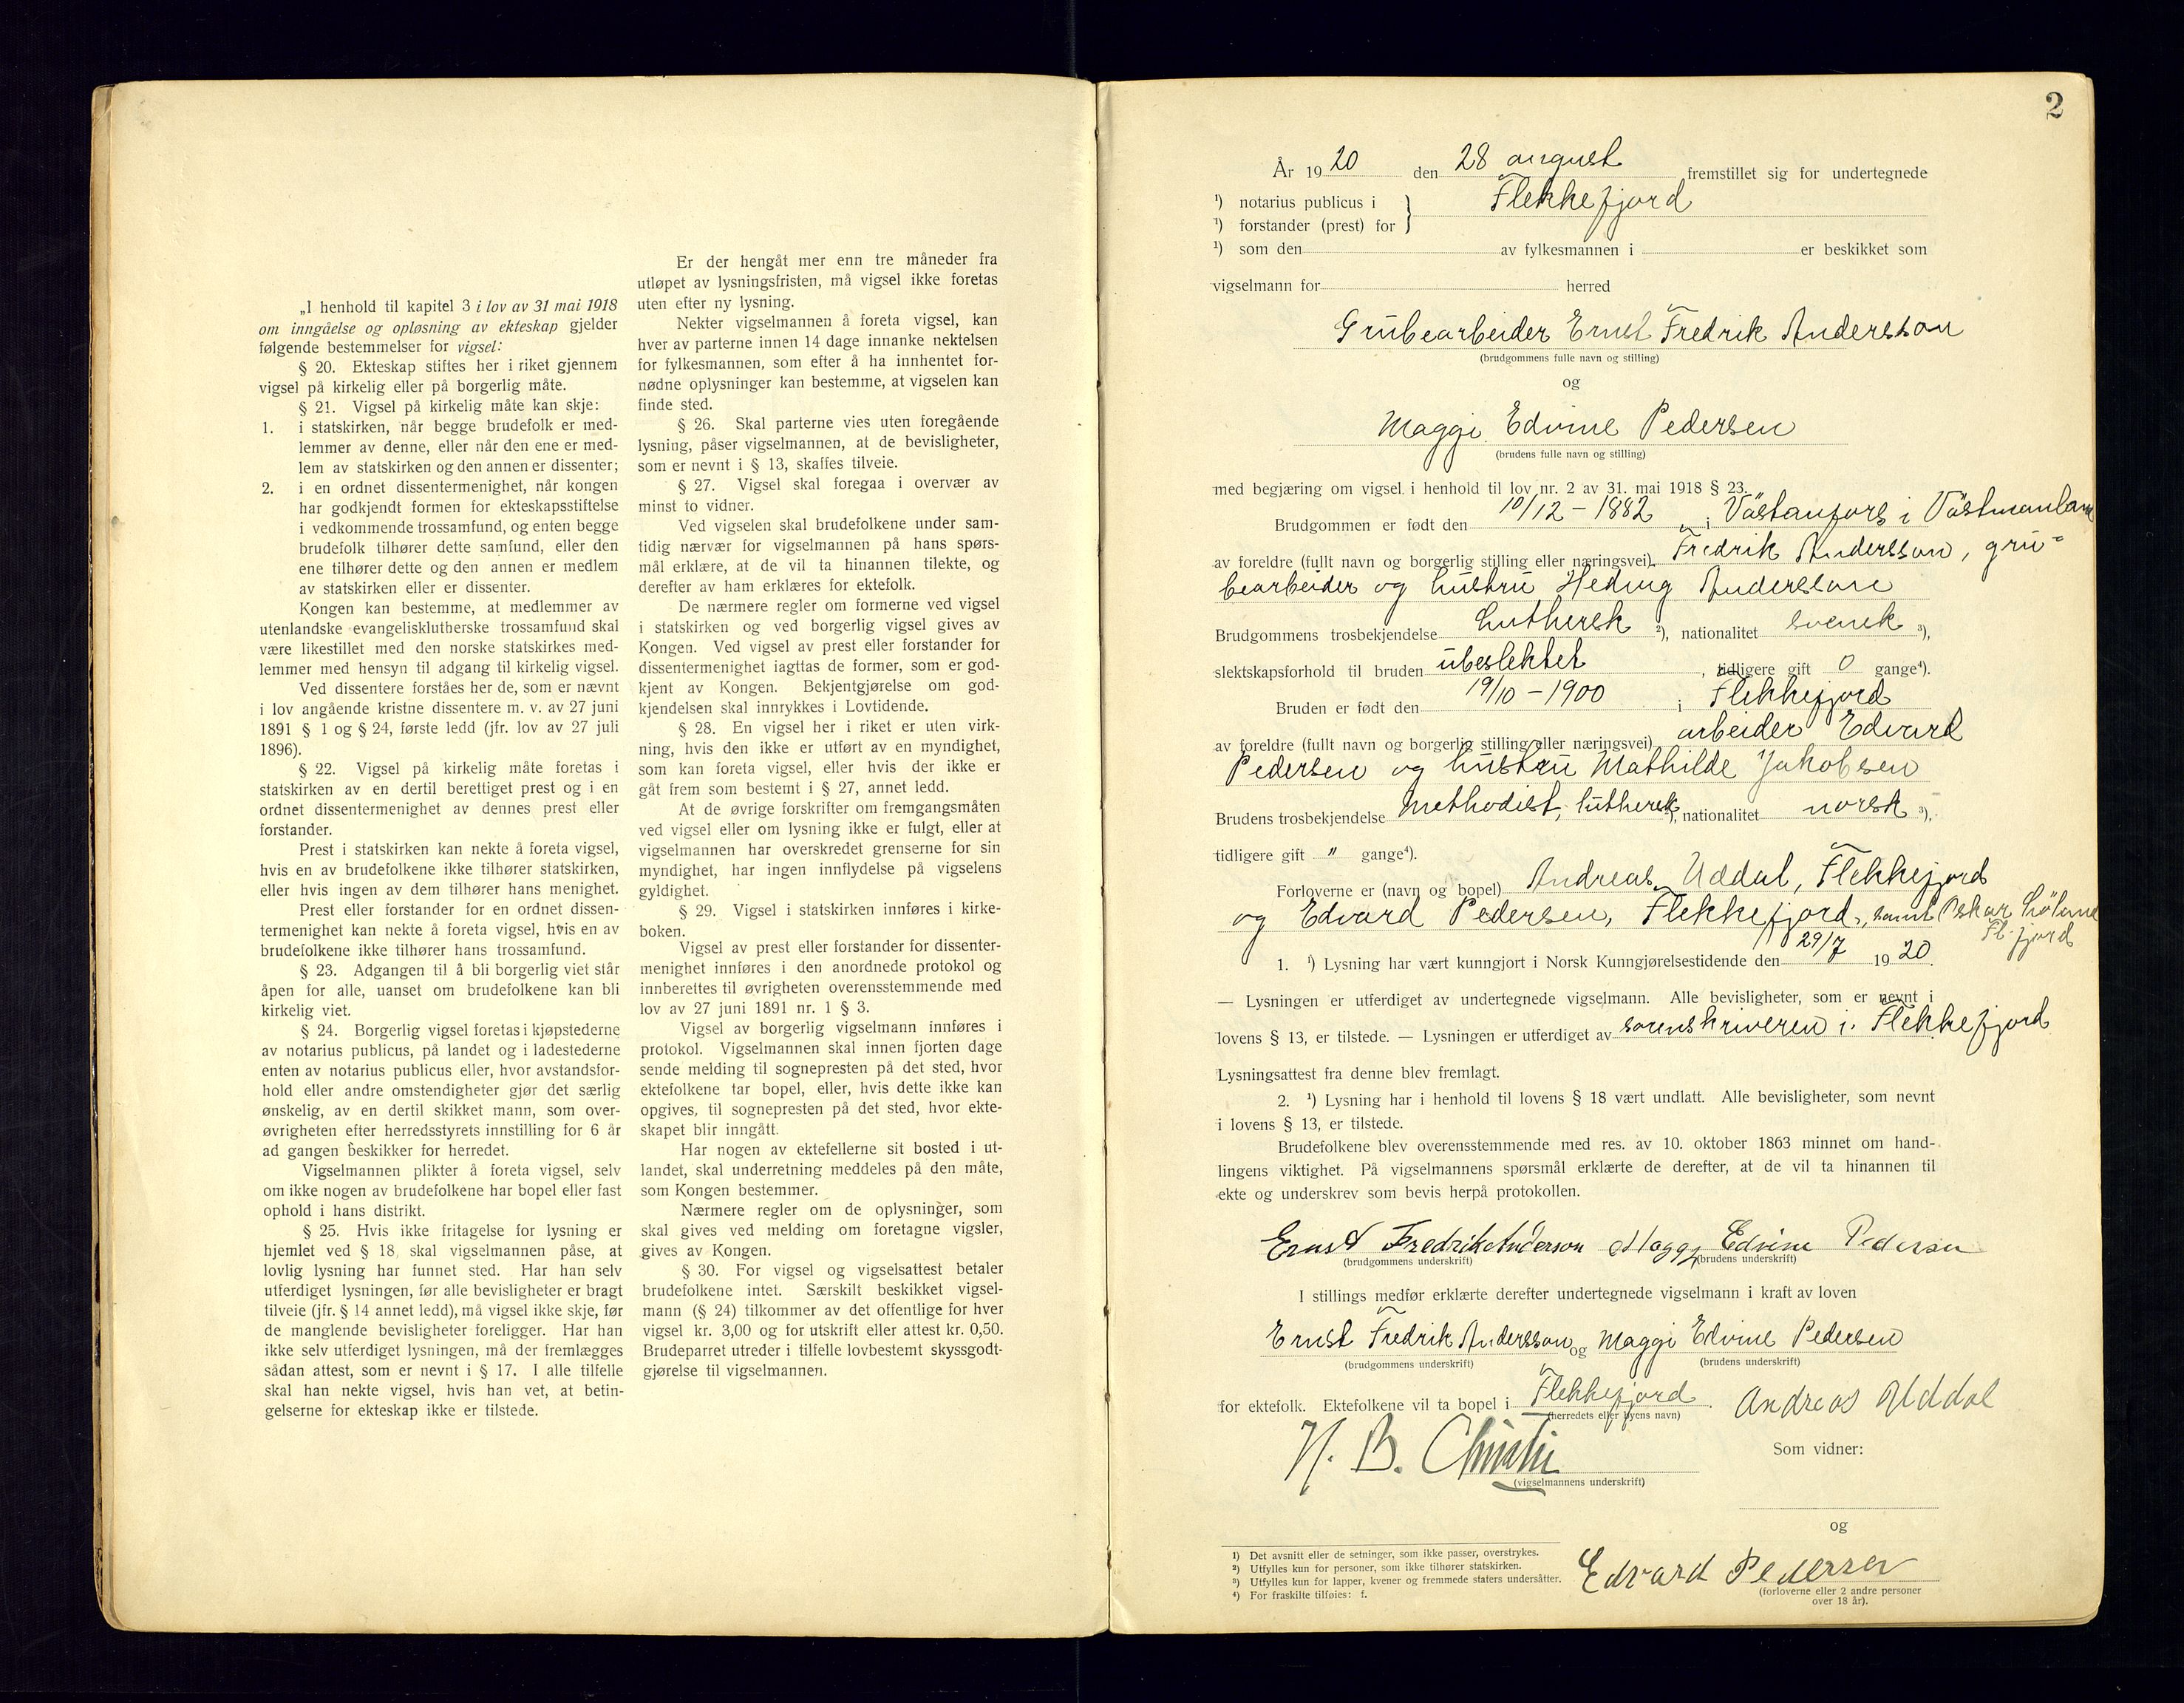 „I henhold til kapitel 3 i lov av 31 mai 1918
om inngåelse og opløsning av ekteskap gjelder
følgende bestemmelser for vigsel:
§ 20. Ekteskap stiftes her i riket gjennem
vigsel på kirkelig eller på borgerlig måte.
§ 21. Vigsel på kirkelig måte kan skje:
1. i statskirken, når begge brudefolk er med-
lemmer av denne, eller når den ene er med-
lem av statskirken og den annen er dissenter;
2. i en ordnet dissentermenighet, når kongen
har godkjendt formen for ekteskapsstiftelse
i vedkommende trossamfund, og enten begge
brudefolk tilhører dette samfund, eller den
ene tilhører dette og den annen er medlem
av statskirken eller er dissenter.
Kongen kan bestemme, at medlemmer av
utenlandske evangelisklutherske trossamfund skal
være likestillet med den norske statskirkes med-
lemmer med hensyn til adgang til kirkelig vigsel.
Ved dissentere forståes her de, som er nævnt
i lov angående kristne dissentere m. v. av 27 juni
1891 § 1 og § 24, første ledd (jfr. lov av 27 juli
1896).
§ 22. Vigsel på kirkelig måte foretas i
statskirken av en dertil berettiget prest og i en
ordnet dissentermenighet av dennes prest eller
forstander.
Prest i statskirken kan nekte å foreta vigsel,
hvis en av brudefolkene ikke tilhører statskirken,
eller hvis ingen av dem tilhører hans menighet.
Prest eller forstander for en ordnet dissen-
termenighet kan nekte å foreta vigsel, hvis en av
brudefolkene ikke tilhører hans trossamfund.
§ 23. Adgangen til å bli borgerlig viet står
åpen for alle, uanset om brudefolkene kan bli
kirkelig viet.
§ 24. Borgerlig vigsel foretas i kjøpstederne
av notarius publicus, på landet og i ladestederne
enten av notarius publicus eller, hvor avstandsfor-
hold eller andre omstendigheter gjør det særlig
ønskelig, av en dertil skikket mann, som over-
øvrigheten efter herredsstyrets innstilling for 6 år
ad gangen beskikker for herredet.
Vigselmannen plikter å foreta vigsel, selv
om ikke nogen av brudefolkene har bopel eller fast
ophold i hans distrikt.
§ 25. Hvis ikke fritagelse for lysning er
hjemlet ved § 18, skal vigselmannen påse, at
lovlig lysning har funnet sted. Har han selv
utferdiget lysningen, før alle bevisligheter er bragt
tilveie (jfr. § 14 annet ledd), må vigsel ikke skje, før
de manglende bevisligheter foreligger. Har han
ikke selv utferdiget lysningen, må der fremlægges
sådan attest, som er nevnt i § 17. I alle tilfelle
skal han nekte vigsel, hvis han vet, at betin-
gelserne for ekteskap ikke er tilstede.
Er der hengåt mer enn tre måneder fra
utløpet av lysningsfristen, må vigsel ikke foretas
uten efter ny lysning.
Nekter vigselmannen å foreta vigsel, kan
hver av parterne innen 14 dage innanke nektelsen
for fylkesmannen, som efter å ha innhentet for-
nødne oplysninger kan bestemme, at vigselen kan
finde sted.
§ 26. Skal parterne vies uten foregående
lysning, påser vigselmannen, at de bevisligheter,
som er nevnt i § 13, skaffes tilveie.
§ 27. Vigsel skal foregaa i overvær av
minst to vidner.
Ved vigselen skal brudefolkene under sam-
tidig nærvær for vigselmannen på hans spørs-
mål erklære, at de vil ta hinannen tilekte, og
derefter av ham erklæres for ektefolk.
De nærmere regler om formerne ved vigsel
i statskirken og ved borgerlig vigsel gives av
Kongen. Ved vigsel av prest eller forstander for
dissentermenighet iagttas de former, som er god-
kjent av Kongen. Bekjentgjørelse om god-
kjendelsen skal innrykkes i Lovtidende.
§ 28. En vigsel her i riket er uten virk-
ning, hvis den ikke er utført av en myndighet,
som kan foreta vigsel, eller hvis der ikke er
gåt frem som bestemt i § 27, annet ledd.
At de øvrige forskrifter om fremgangsmåten
ved vigsel eller om lysning ikke er fulgt, eller at
vigselmannen har overskredet grenserne for sin
myndighet, har ingen innflydelse på vigselens
gyldighet.
§ 29. Vigsel i statskirken innføres i kirke-
boken.
Vigsel av prest eller forstander for dissenter-
menighet innføres i den anordnede protokol og
innberettes til øvrigheten overensstemmende med
lov av 27 juni 1891 nr. 1 § 3.
Vigsel av borgerlig vigselmann innføres i
protokol. Vigselmannen skal innen fjorten dage
sende melding til sognepresten på det sted, hvor
ektefolkene tar bopel, eller, hvis dette ikke kan
opgives, til sognepresten på det sted, hvor ekte-
skapet blir inngått.
Har nogen av ektefellerne sit bosted i ut-
landet, skal underretning meddeles på den måte,
som Kongen bestemmer.
Nærmere regler om de oplysninger, som
skal gives ved melding om foretagne vigsler,
gives av Kongen.
§ 30. For vigsel og vigselsattest betaler
brudefolkene intet. Særskilt beskikket vigsel-
mann (§ 24) tilkommer av det offentlige for hver
vigsel kr. 3,00 og for utskrift eller attest kr. 0,50.
Brudeparret utreder i tilfelle lovbestemt skyssgodt-
gjørelse til vigselmannen.
2
År 1920 den 28 august fremstillet sig for undertegnede
¹) notarius publicus i } Flekkefjord
¹) forstander (prest) for
¹) som den av fylkesmannen i er beskikket som
vigselmann for herred
Grubearbeider Ernst Fredrik Andersson
(brudgommens fulle navn og stilling)
og
Maggi Edvine Pedersen
(brudens fulle navn og stilling)
med begjæring om vigsel i henhold til lov nr. 2 av 31. mai 1918 § 23.
Brudgommen er født den 10/12 - 1882 i Västanfors i Västmanland
av foreldre (fullt navn og borgerlig stilling eller næringsvei) Fredrik Andersson, gru-
bearbeider og hustru Hedvig Andersson
Brudgommens trosbekjendelse Luthersk ²), nationalitet svensk ³),
slektskapsforhold til bruden ubeslektet, tidligere gift 0 gange⁴).
Bruden er født den 19/10 - 1900 i Flekkefjord
av foreldre (fullt navn og borgerlig stilling eller næringsvei) arbeider Edvard
Pedersen og hustru Mathilde Jakobsen
Brudens trosbekjendelse methodist, luthersk ²), nationalitet norsk ³),
tidligere gift " gange⁴).
Forloverne er (navn og bopel) Andreas Uddal, Flekkefjord
og Edvard Pedersen, Flekkefjord, samt Oskar
Fl.fjord
1. ¹) Lysning har vært kunngjort i Norsk Kunngjørelsestidende den 29/7 1920.
— Lysningen er utferdiget av undertegnede vigselmann. Alle bevisligheter, som er nevnt i
lovens § 13, er tilstede. — Lysningen er utferdiget av sorenskriveren i Flekkefjord
Lysningsattest fra denne blev fremlagt.
2. ¹) Lysning har i henhold til lovens § 18 vært undlatt. Alle bevisligheter, som nevnt
i lovens § 13, er tilstede.
Brudefolkene blev overensstemmende med res. av 10. oktober 1863 minnet om hand-
lingens viktighet. På vigselmannens spørsmål erklærte de derefter, at de vil ta hinannen til
ekte og underskrev som bevis herpå protokollen.
Ernst Fredrik Anderson Maggy Edvine Pedersen
(brudgommens underskrift) (brudens underskrift)
I stillings medfør erklærte derefter undertegnede vigselmann i kraft av loven
Ernst Fredrik Andersson og Maggi Edvine Pedersen
(brudgommens underskrift) (brudens underskrift)
for ektefolk. Ektefolkene vil ta bopel i Flekkefjord. Andreas Uddal
(herredets eller byens navn)
H. B. Christie Som vidner:
(vigselmannens underskrift)
og
Edvard Pedersen
(forloverne eller 2 andre personer
over 18 år).
¹) Det avsnitt eller de setninger, som ikke passer, overstrykes.
²) Utfylles kun for personer, som ikke tilhører statskirken.
³) Utfylles kun for lapper, kvener og fremmede staters undersåtter.
⁴) For fraskilte tilføies: f.